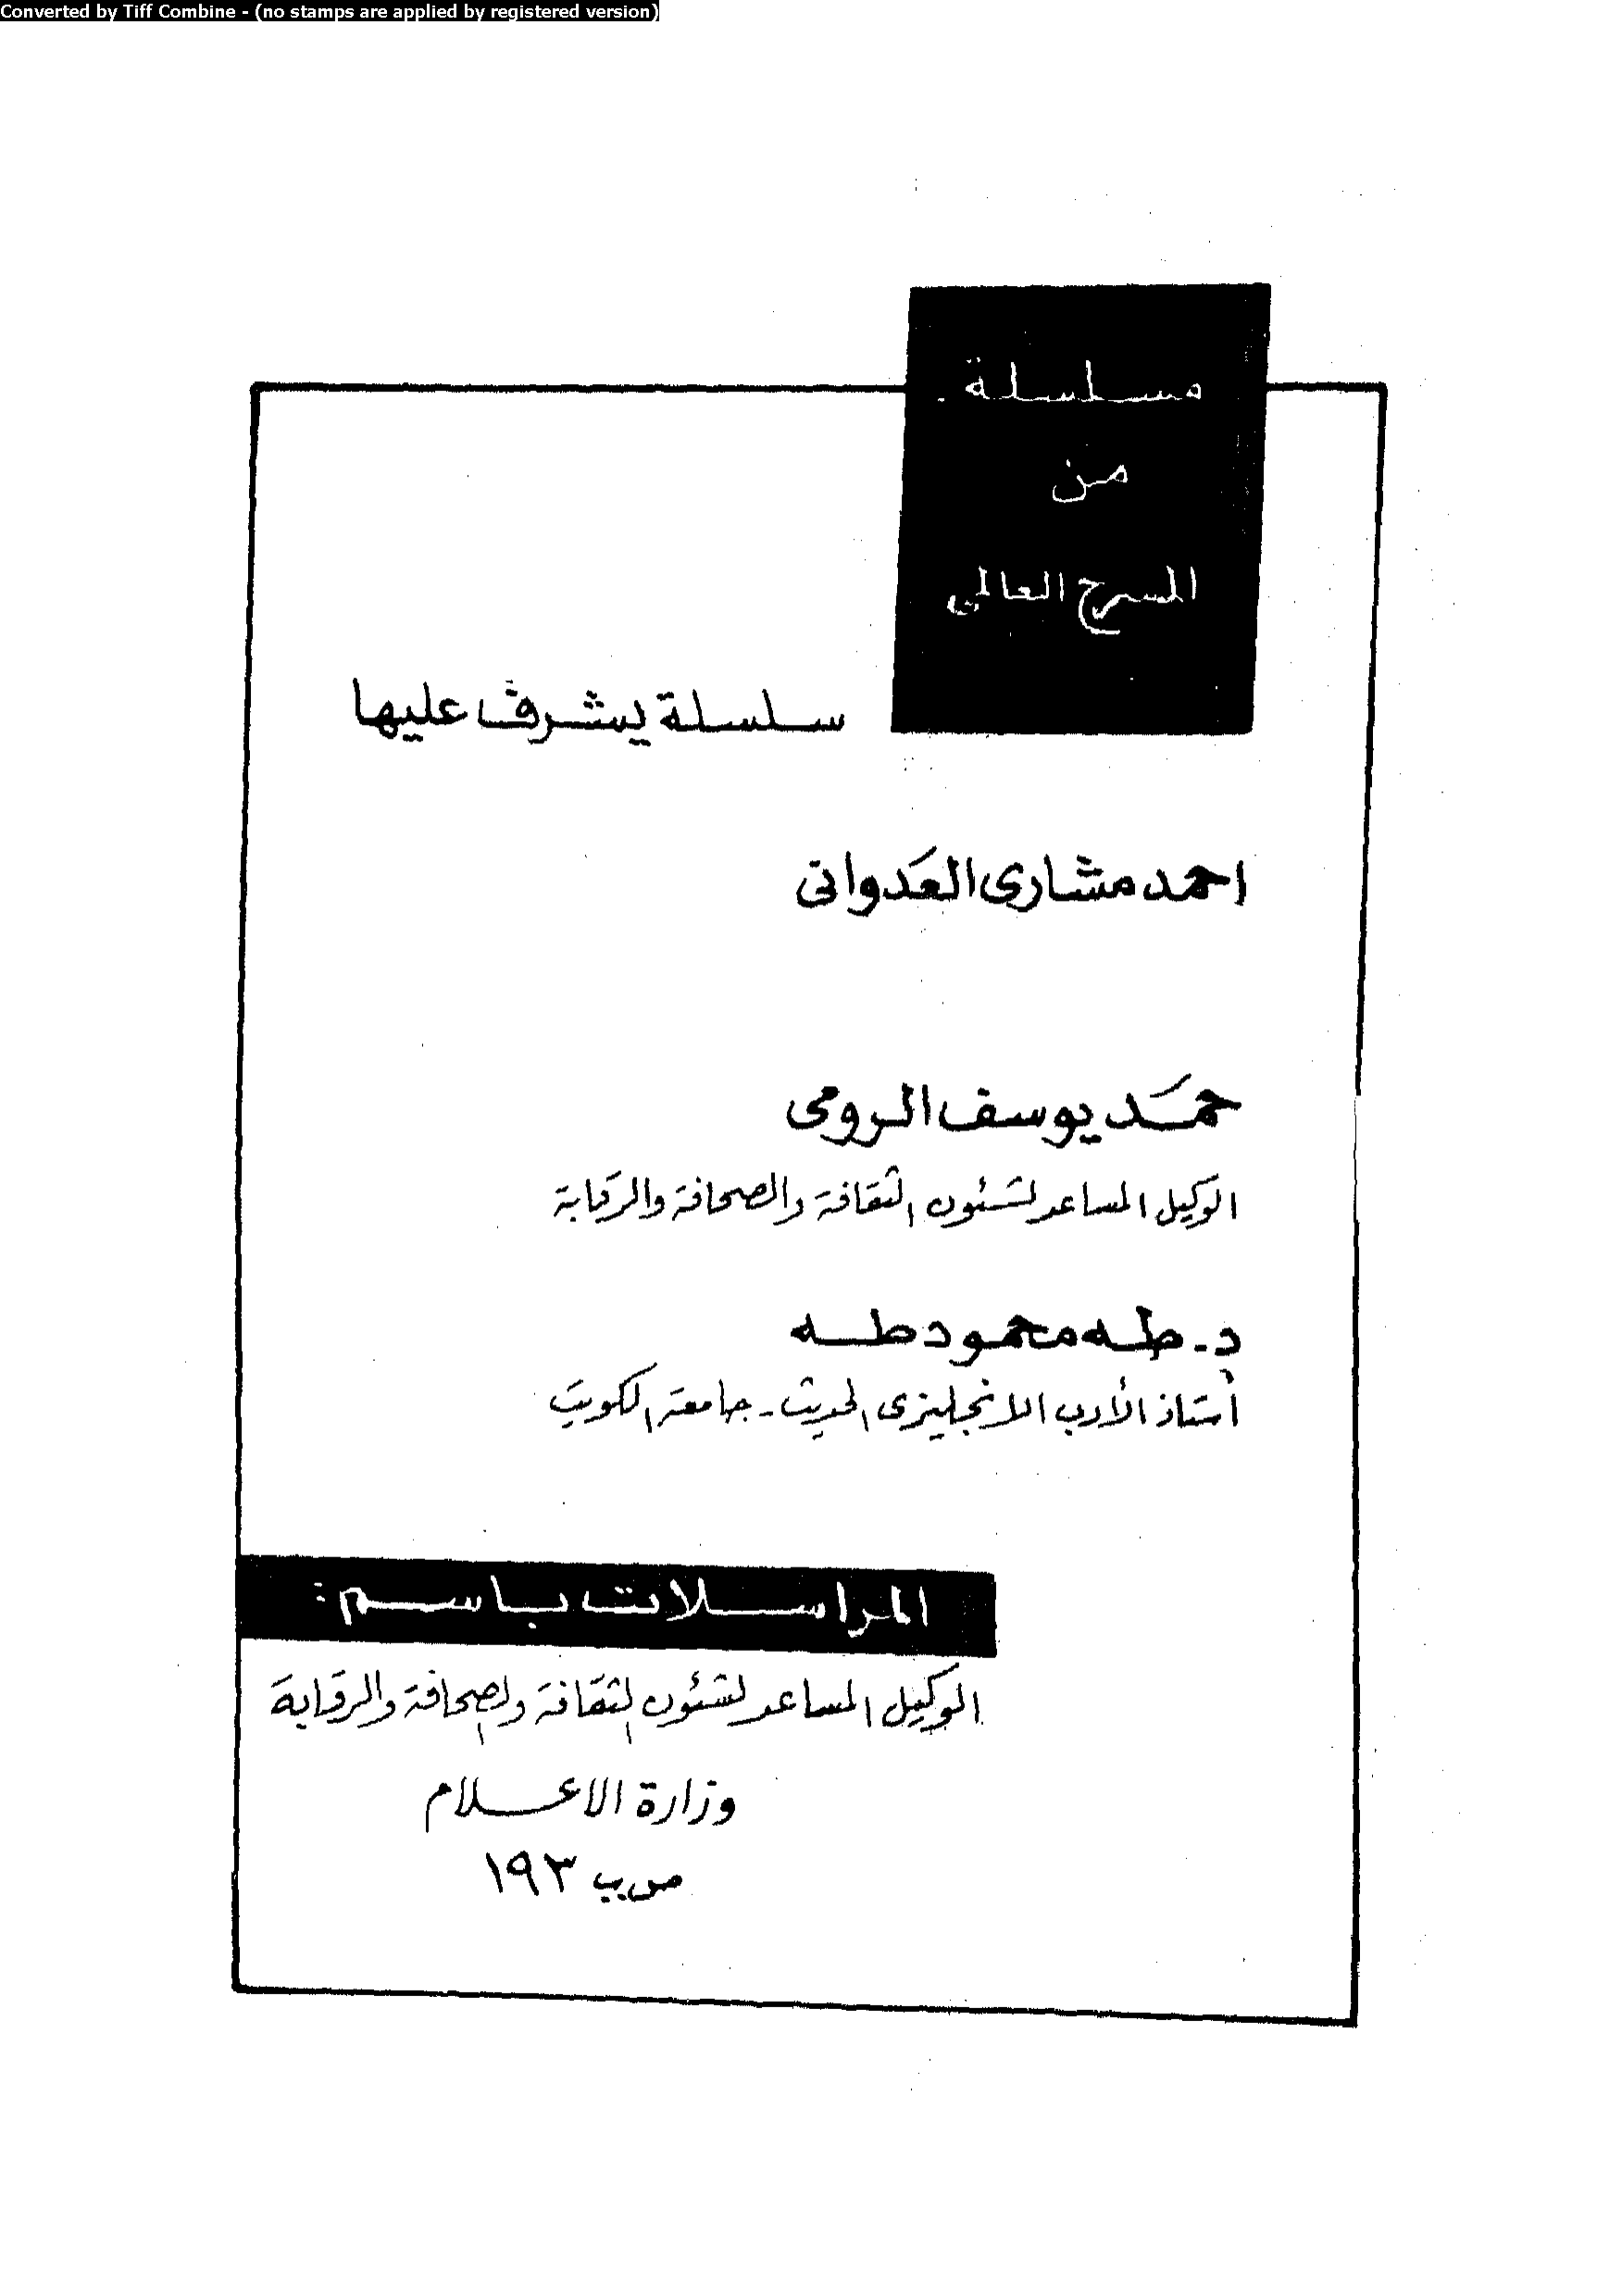 Converted by Tiff Combine - (no stamps are applied by registered version)
مسلسلة
من
المسرح العالمي
سلسلة يشرف عليها
احمد مشارى العدوانى
حمد يوسف الرومى
الوكيل المساعد لشئون الثقافة والصحافة والرقابة
د. طه محمود طه
أستاذ الأدب الانجليزى الحديث - جامعة الكويت
المراسلات باسم:
الوكيل المساعد لشئون الثقافة والصحافة والرقابة
وزارة الاعلام
ص.ب ١٩٣